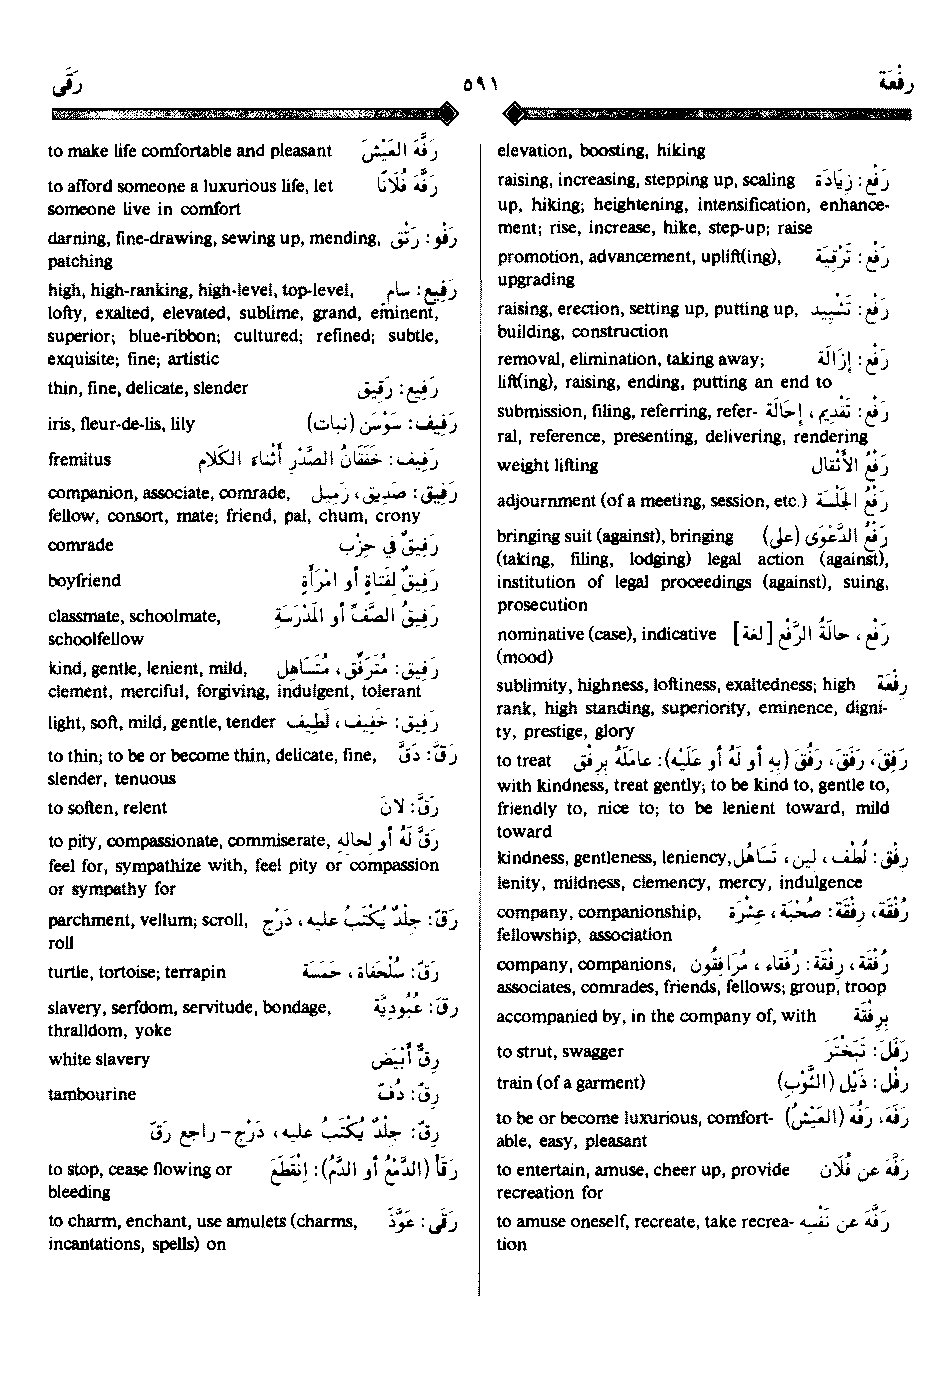 رفْعَة
٥٩١
رَقَّى
elevation, boosting, hiking
raising, increasing, stepping up, scaling رَفْع: زِيَادَة
up, hiking; heightening, intensification, enhance-
ment; rise, increase, hike, step-up; raise
promotion, advancement, uplift(ing), رَفْع: تَرْقِيَة
upgrading
raising, erection, setting up, putting up, رَفْع: تَشْيِيد
building, construction
removal, elimination, taking away; رَفْع: إزَالَة
lift(ing), raising, ending, putting an end to
submission, filing, referring, refer- رَفْع: تَقْدِيم، إحَالَة
ral, reference, presenting, delivering, rendering
weight lifting رَفْعُ الأَثْقَال
adjournment (of a meeting, session, etc.) رَفْعُ الجَلْسَة
bringing suit (against), bringing رَفْعُ الدَّعْوَى (على)
(taking, filing, lodging) legal action (against),
institution of legal proceedings (against), suing,
prosecution
nominative (case), indicative رَفْع، حَالَةُ الرَّفْع [لغة]
(mood)
sublimity, highness, loftiness, exaltedness; high رِفْعَة
rank, high standing, superiority, eminence, digni-
ty, prestige, glory
to treat رَفِقَ، رَفَقَ، رَفُقَ (بِهِ أو لَهُ أو عَلَيْهِ): عَامَلَهُ بِرِفْق
with kindness, treat gently; to be kind to, gentle to,
friendly to, nice to; to be lenient toward, mild
toward
kindness, gentleness, leniency, رِفْق: لُطْف، لِين، تَسَاهُل
lenity, mildness, clemency, mercy, indulgence
company, companionship, رُفْقَة، رِفْقَة: صُحْبَة، عِشْرَة
fellowship, association
company, companions, رُفْقَة، رِفْقَة: رُفَقَاء، مُرَافِقُون
associates, comrades, friends, fellows; group, troop
accompanied by, in the company of, with بِرِفْقَة
to strut, swagger رَفَلَ: تَبَخْتَرَ
train (of a garment) رِفْل: ذَيْل (الثَّوْبِ)
to be or become luxurious, comfort- رَفَهَ، رَفُهَ (العَيْشُ)
able, easy, pleasant
to entertain, amuse, cheer up, provide رَفَّهَ عن فُلَان
recreation for
to amuse oneself, recreate, take recrea- رَفَّهَ عن نَفْسِه
tion
to make life comfortable and pleasant رَفَّهَ العَيْشَ
to afford someone a luxurious life, let رَفَّهَ فُلَانًا
someone live in comfort
darning, fine-drawing, sewing up, mending, رَفْو: رَتْق
patching
high, high-ranking, high-level, top-level, رَفِيع: سَامٍ
lofty, exalted, elevated, sublime, grand, eminent,
superior; blue-ribbon; cultured; refined; subtle,
exquisite; fine; artistic
thin, fine, delicate, slender رَفِيع: رَقِيق
iris, fleur-de-lis, lily رَفِيف: سَوْسَن (نبات)
fremitus رَفِيف: خَفَقَانُ الصَّدْرِ أَثْنَاءَ الكَلَام
companion, associate, comrade, رَفِيق: صَدِيق، زَمِيل
fellow, consort, mate; friend, pal, chum, crony
comrade رَفِيقٌ في حِزْب
boyfriend رَفِيقٌ لِفَتَاةٍ أو امْرَأَة
classmate, schoolmate, رَفِيقُ الصَّفِّ أو المَدْرَسَة
schoolfellow
kind, gentle, lenient, mild, رَفِيق: مُتَرَفِّق، مُتَسَاهِل
clement, merciful, forgiving, indulgent, tolerant
light, soft, mild, gentle, tender رَفِيق: خَفِيف، لَطِيف
to thin; to be or become thin, delicate, fine, رَقَّ: دَقَّ
slender, tenuous
to soften, relent رَقَّ: لانَ
to pity, compassionate, commiserate, رَقَّ لَهُ أو لحالِهِ
feel for, sympathize with, feel pity or compassion
or sympathy for
parchment, vellum; scroll, رَقّ: جِلْدٌ يُكْتَبُ عليه، دَرْج
roll
turtle, tortoise; terrapin رَقّ: سُلَحْفَاة، حَمَسَة
slavery, serfdom, servitude, bondage, رِقّ: عُبُودِيَّة
thralldom, yoke
white slavery رِقٌّ أَبْيَض
tambourine رِقّ: دُفّ
رِقّ: جِلْدٌ يُكْتَبُ عليه، دَرْج - راجع رَقّ
to stop, cease flowing or رَقَأَ (الدَّمْعُ أو الدَّمُ): اِنْقَطَعَ
bleeding
to charm, enchant, use amulets (charms, رَقَى: عَوَّذَ
incantations, spells) on